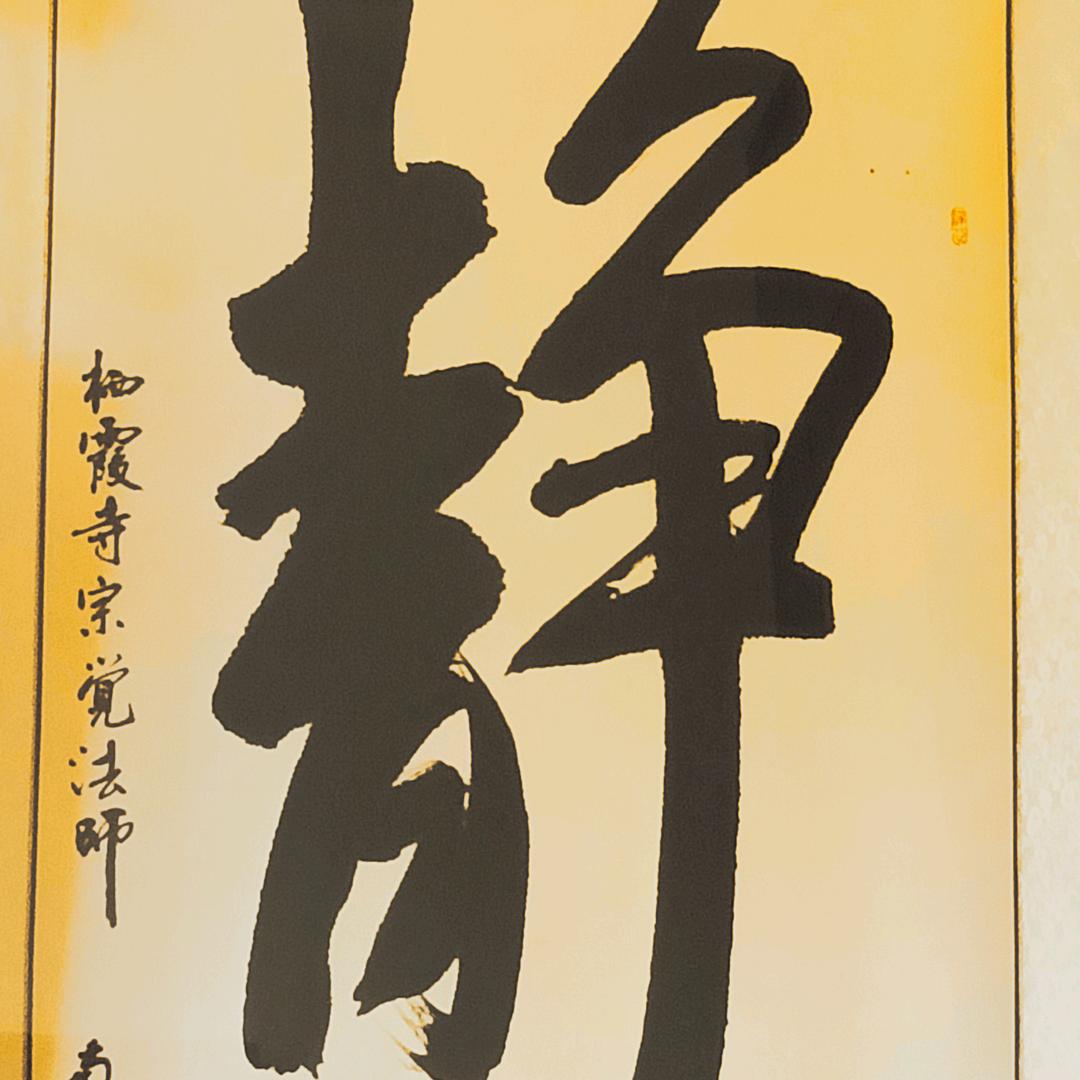 静
栖霞寺宗覚法師